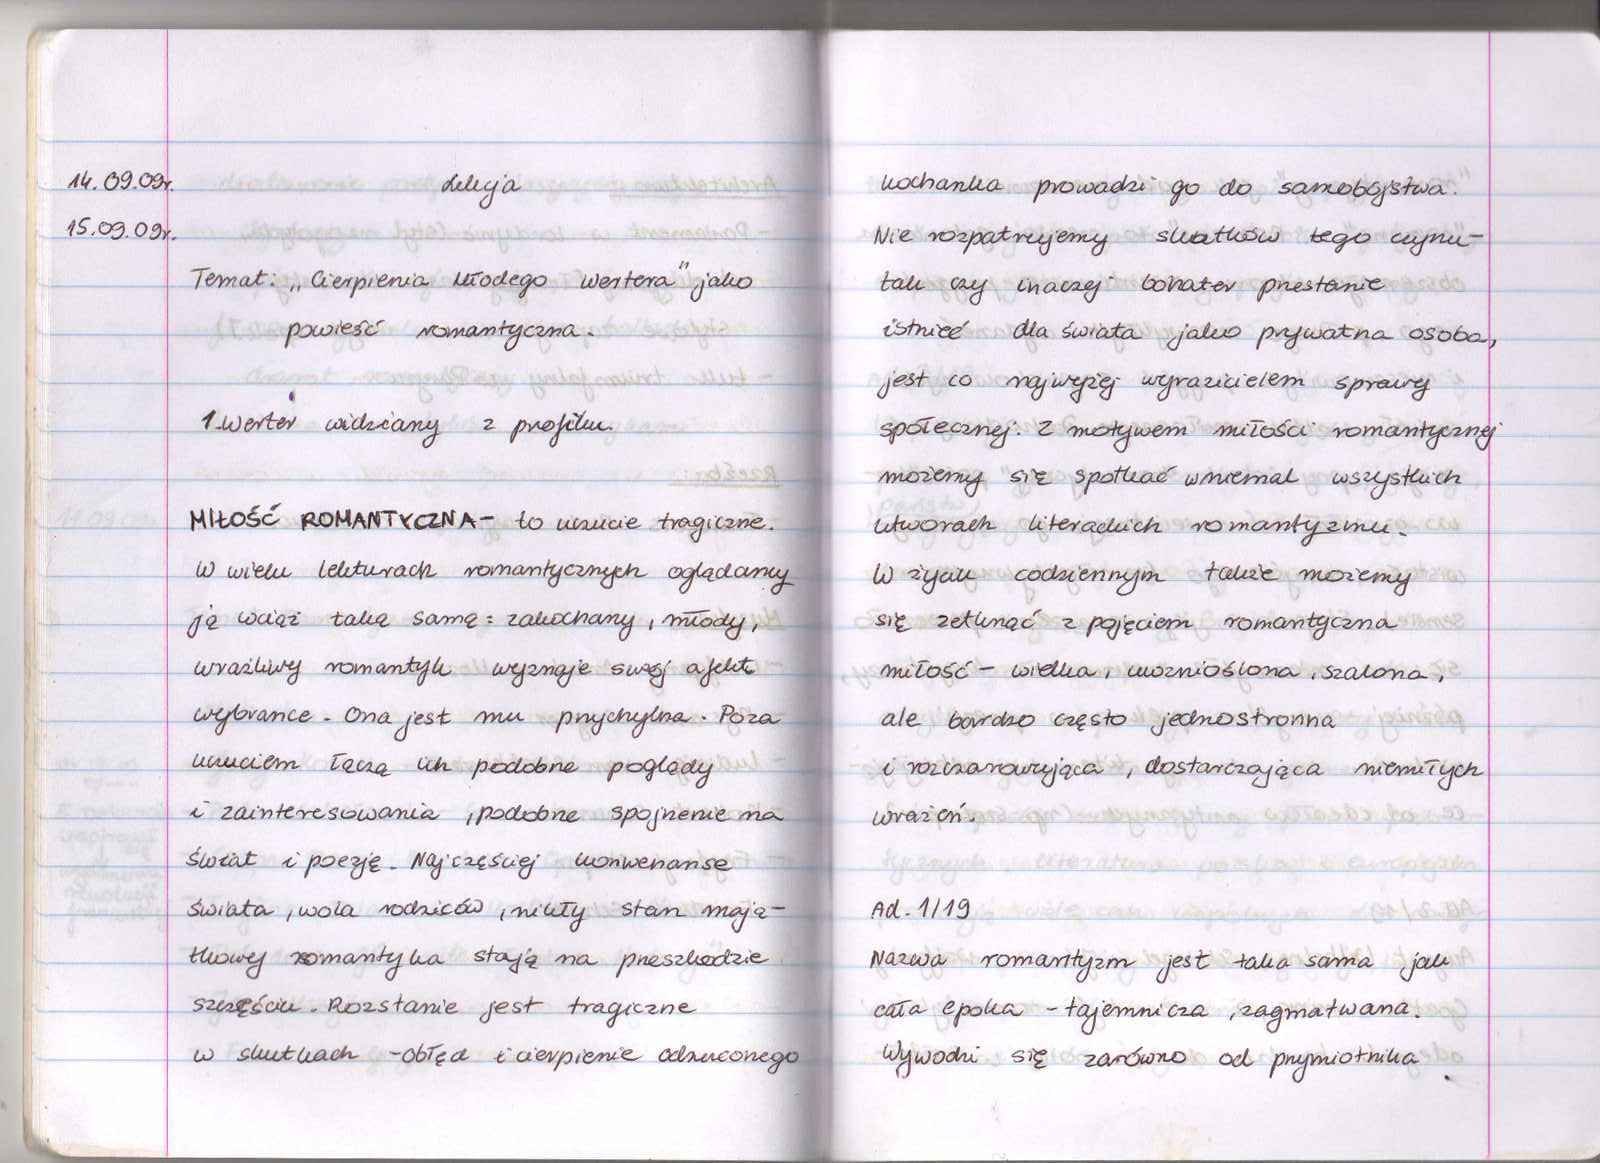 14.09.09r. Lekcja
15.09.09r.
Temat: „Cierpienia młodego Wertera" jako
powieść romantyczna.
1. Werter widziany z profilu.
MIŁOŚĆ ROMANTYCZNA - to uczucie tragiczne.
W wielu lekturach romantycznych oglądamy
ją wciąż taką samą: zakochany, młody,
wrażliwy romantyk wyznaje swój afekt
wybrance. Ona jest mu przychylna. Poza
uczuciem łączą ich podobne poglądy
i zainteresowania, podobne spojrzenie na
świat i poezję. Najczęściej konwenanse
świata, wola rodziców, nikły stan mają-
tkowy romantyka stają na przeszkodzie
szczęściu. Rozstanie jest tragiczne
w skutkach - obłęd i cierpienie odrzuconego
kochanka prowadzi go do samobójstwa.
Nie rozpatrujemy skutków tego czynu -
tak czy inaczej bohater przestanie
istnieć dla świata jako prywatna osoba,
jest co najwyżej wyrazicielem sprawy
społecznej. Z motywem miłości romantycznej
możemy się spotkać wniemal wszystkich
utworach literackich romantyzmu.
W życiu codziennym także możemy
się zetknąć z pojęciem romantyczna
miłość - wielka, wzniosła, szalona,
ale bardzo często jednostronna
i rozczarowująca, dostarczająca niemiłych
wrażeń.
Ad. 1/19
Nazwa romantyzm jest taka sama jak
cała epoka - tajemnicza, zagmatwana.
Wywodzi się zarówno od przymiotnika